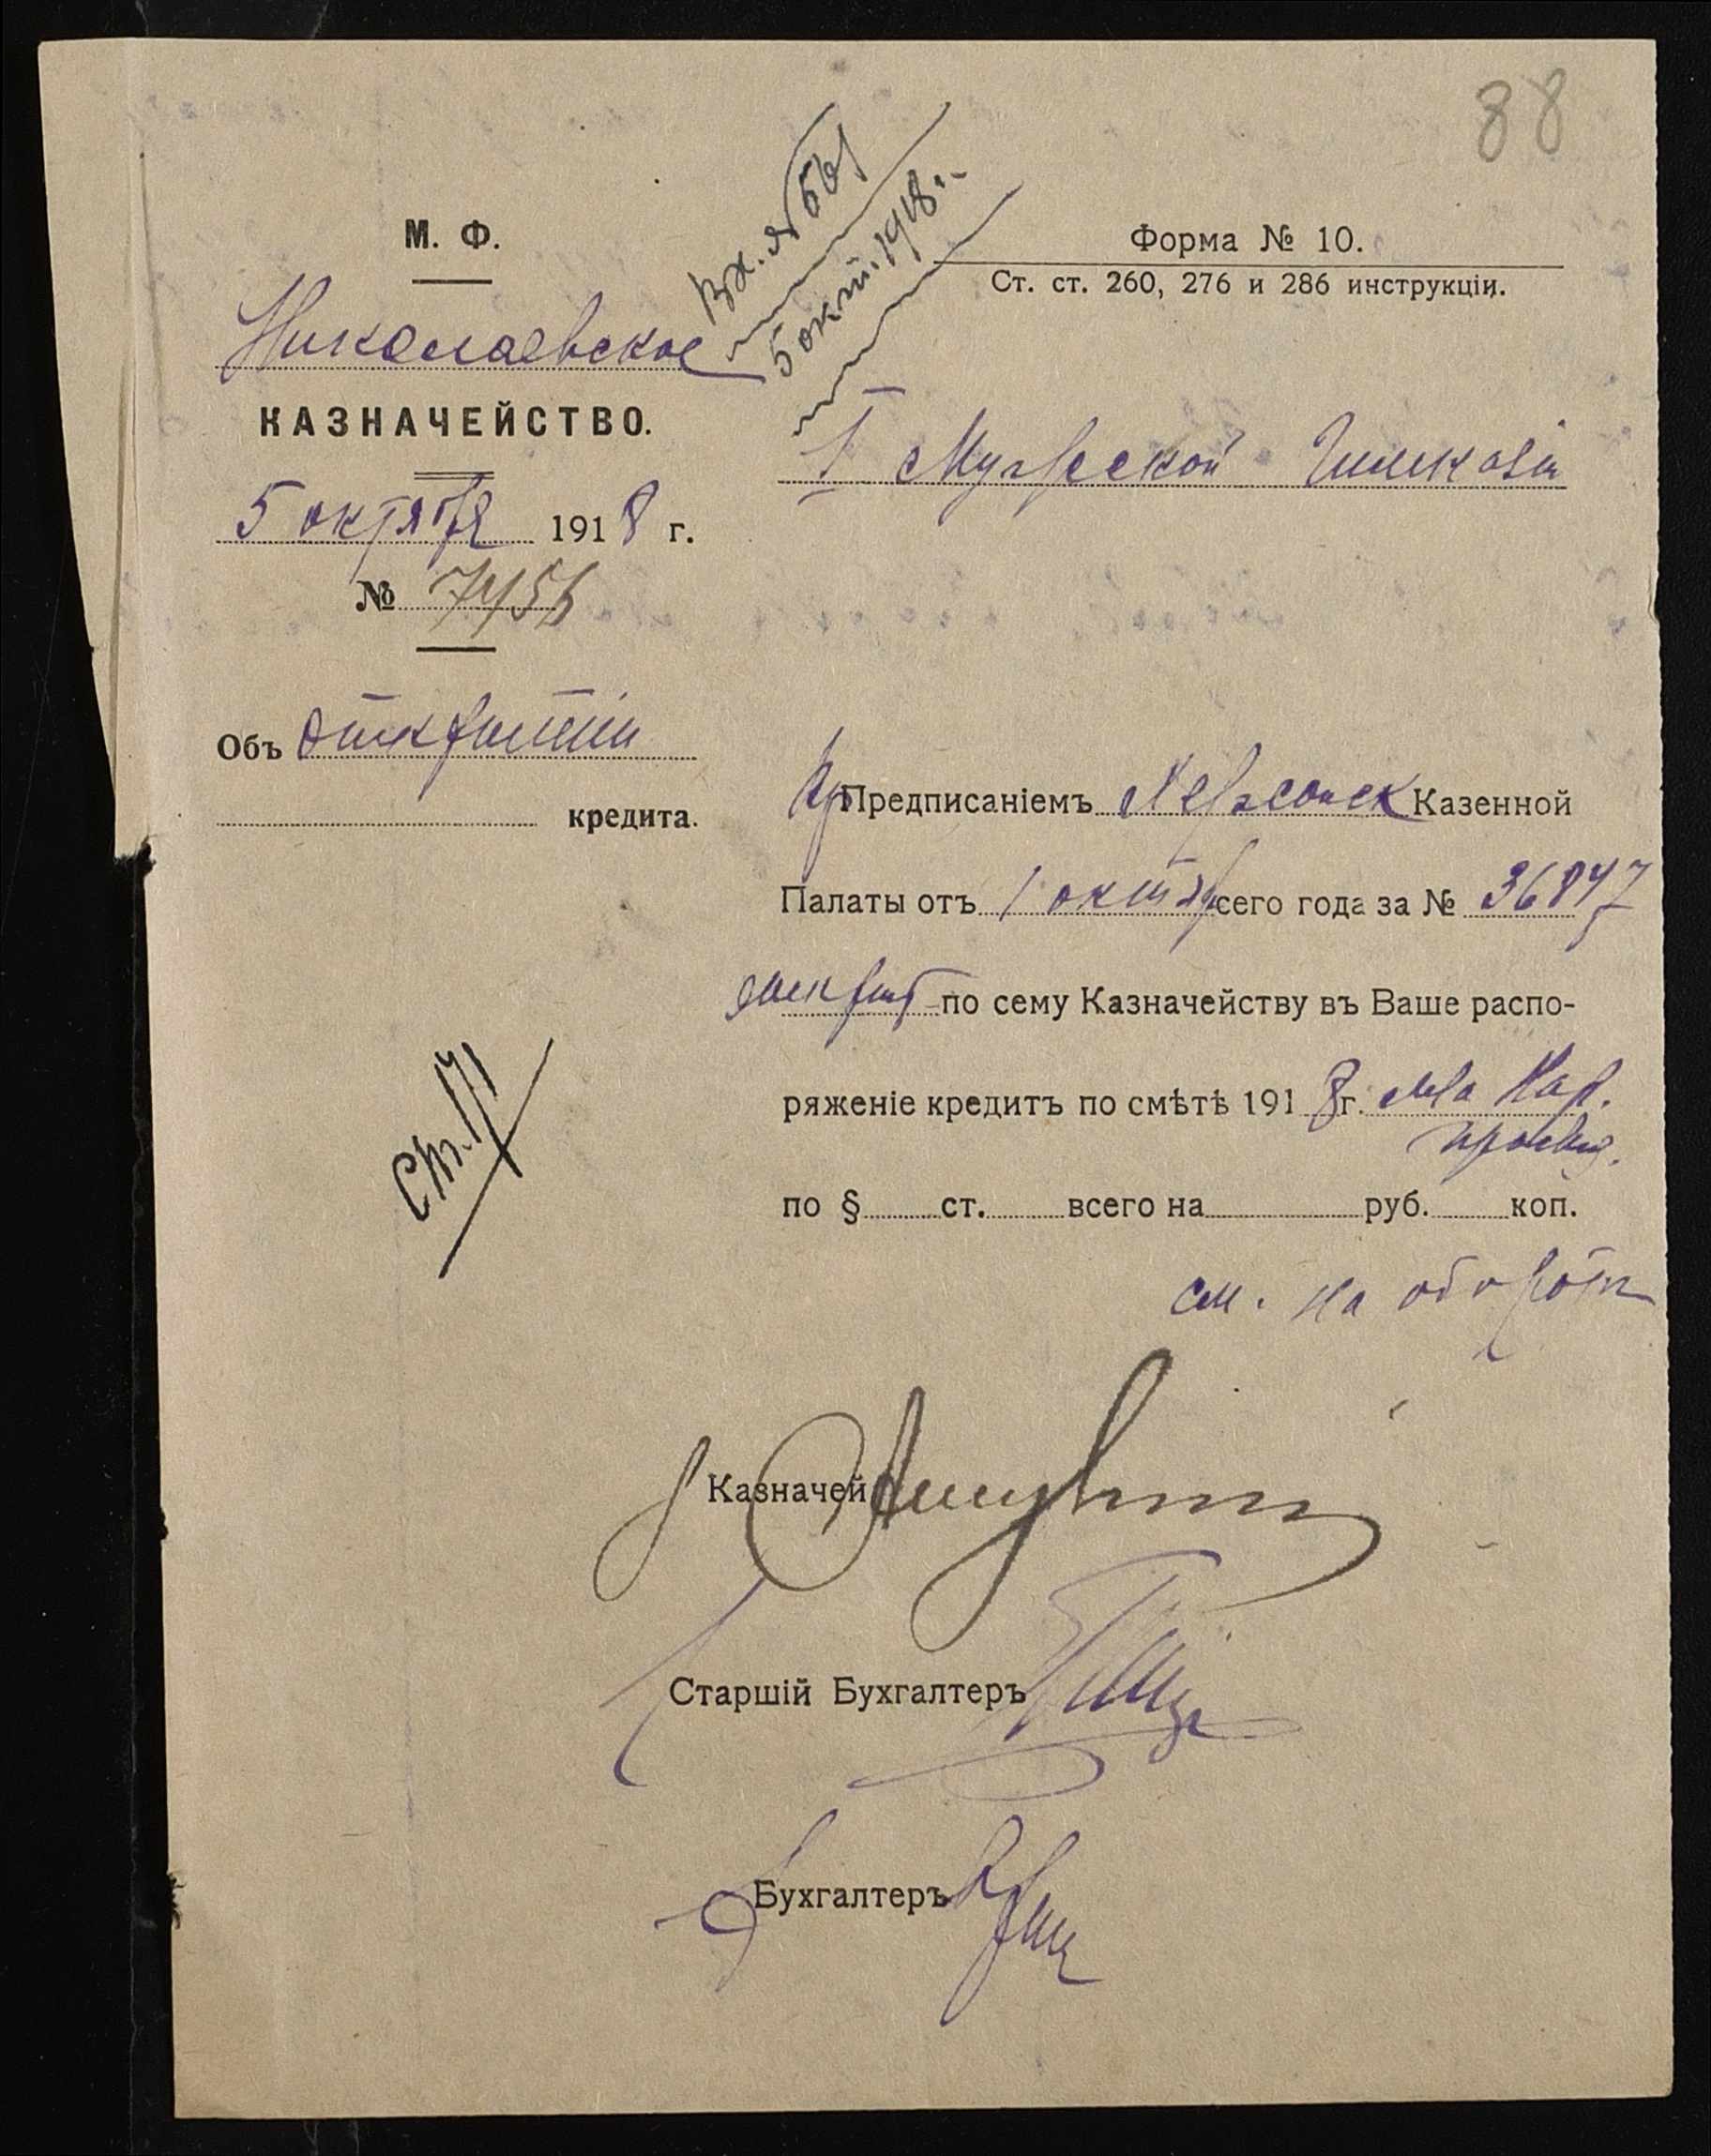 88
М. Ф.
Николаевское
КАЗНАЧЕЙСТВО.
5 октября 1918 г.
№ 7456
Объ открытіи
кредита.
Вх. № 561
5 окт. 1918 г.
Форма № 10.
Ст. ст. 260, 276 и 286 инструкціи.
1 Мужской Гимназіи
Предписаніемъ Херсонск Казенной
Палаты отъ 1 октяб сего года за № 36847
открытъ по сему Казначейству въ Ваше распо-
ряженіе кредитъ по смѣтѣ 1918 г. М-ва Нар.
просвѣщ.
по § ст. всего на руб. коп.
см. на оборотѣ
Ст. 171
Казначей
Старшій Бухгалтеръ
Бухгалтеръ